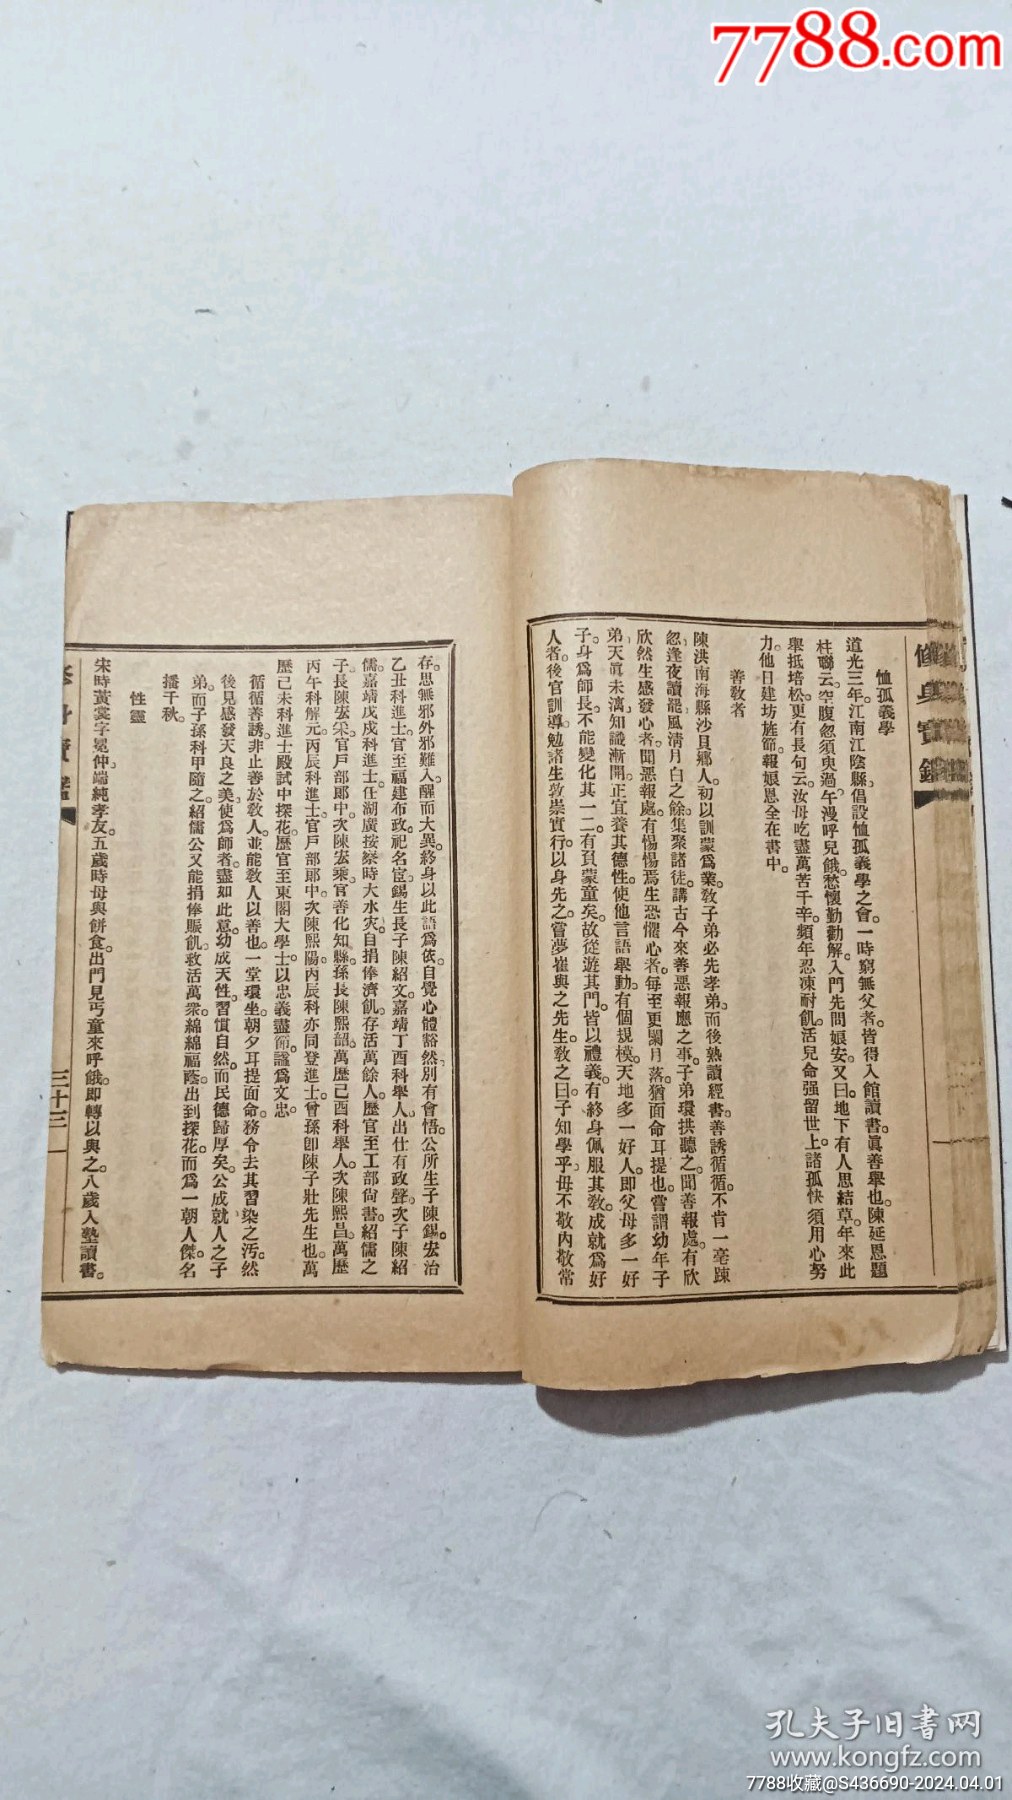 7788.com
修身寶鑑
恤孤義學
道光三年。江南江陰縣。倡設恤孤義學之會。一時窮無父者。皆得入館讀書。眞善舉也。陳延恩題
柱聯云。空腹忽須臾過。午漫呼兒餓。愁懷勤勸解。入門先問娘安。又曰。地下有人思結草。年來此
舉抵培松。更有長句云。汝母吃盡萬苦千辛。頻年忍凍耐飢。活兒命强留世上。諸孤快須用心努
力。他日建坊旌節。報娘恩全在書中。
善敎者
陳洪南海縣沙貝鄉人。初以訓蒙爲業。敎子弟必先孝弟。而後熟讀經書。善誘循循。不肯一毫踈
忽。逢夜讀罷。風淸月白之餘。集聚諸徒。講古今來善惡報應之事。子弟環拱聽之。聞善報處。有欣
欣然生感發心者。聞惡報處。有惕惕焉生恐懼心者。每至更闌月落。猶面命耳提也。嘗謂幼年子
弟。天眞未漓。知識漸開。正宜養其德性。使他言語舉動。有個規模。天地多一好人。即父母多一好
子。身爲師長。不能變化其一二。有負蒙童矣。故從遊其門。皆以禮義。有終身佩服其敎。成就爲好
人者。後官訓導。勉諸生敦崇實行。以身先之。嘗夢崔與之先生。敎之曰。子知學乎。毋不敬。內敬常
存。思無邪。外邪難入。醒而大異。終身以此語爲依。自覺心體豁然。別有會悟。公所生子陳錫。宏治
乙丑科進士。官至福建布政。祀名宦。錫生長子陳紹文。嘉靖丁酉科舉人。出仕有政聲。次子陳紹
儒。嘉靖戊戌科進士。任湖廣按察。時大水灾。自捐俸濟飢。存活萬餘人。歷官至工部尙書。紹儒之
子。長陳宏采。官戶部郞中。次陳宏乘。官善化知縣。孫長陳熙韶。萬歷己酉科舉人。次陳熙昌。萬歷
丙午科解元。丙辰科進士。官戶部郞中。次陳熙陽。丙辰科亦同登進士。曾孫卽陳子壯先生也。萬
歷己未科進士。殿試中探花。歷官至東閣大學士。以忠義盡節。諡爲文忠。
循循善誘。非止善於敎人。並能敎人以善也。一堂環坐。朝夕耳提面命。務令去其習染之汚。然
後見感發天良之美。使爲師者盡如此意。幼成天性。習慣自然。而民德歸厚矣。公成就人之子
弟。而子孫科甲隨之。紹儒公又能捐俸賑飢。救活萬衆。綿綿福蔭。出到探花。而爲一朝人傑。名
播千秋。
性靈
宋時黃裳字冕仲。端純孝友。五歲時母與餅食。出門見丐童來呼餓。即轉以與之。八歲入塾讀書。
三十三
孔夫子旧書网
www.kongfz.com
7788收藏@S436690-2024.04.01